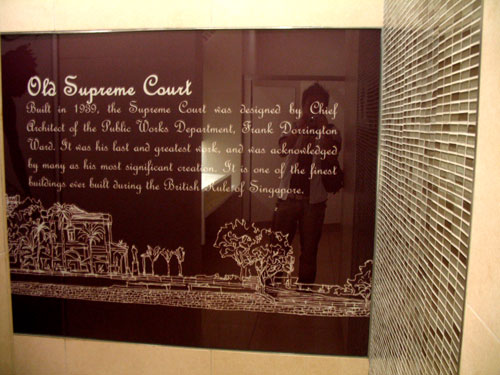 Old Supreme Court
Built in 1939, the Supreme Court was designed by Chief
Architect of the Public Works Department, Frank Dorrington
Ward. It was his last and greatest work, and was acknowledged
by many as his most significant creation. It is one of the finest
buildings ever built during the British Rule of Singapore.